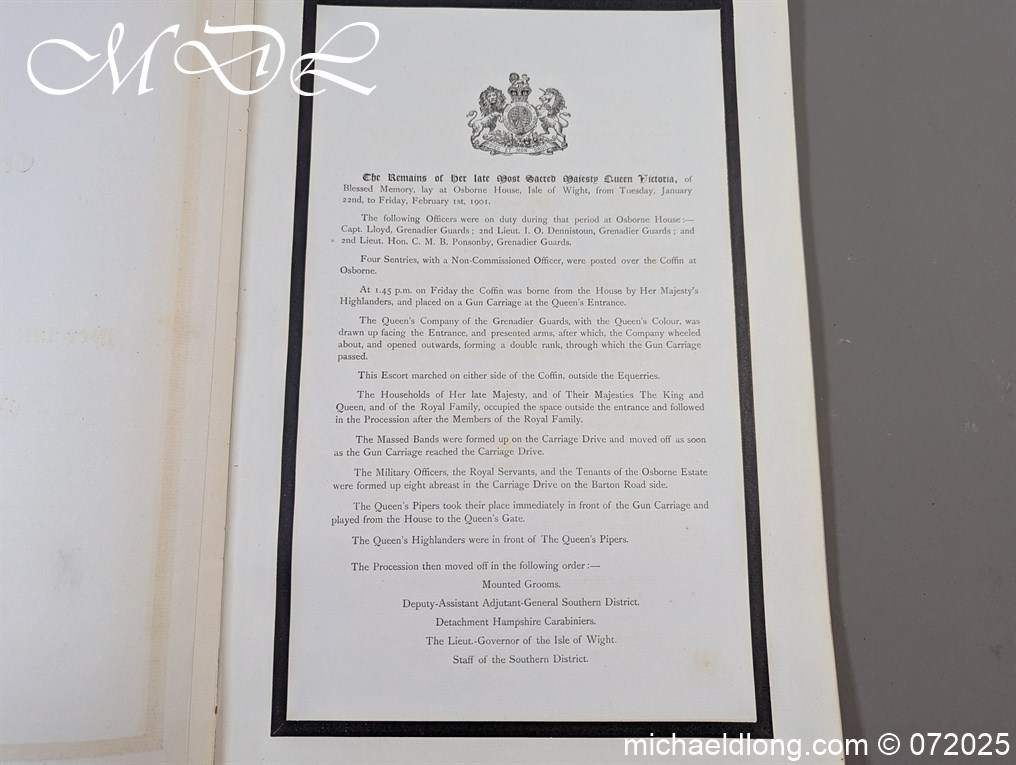 MDL
The Remains of Her late Most Sacred Majesty Queen Victoria, of
Blessed Memory, lay at Osborne House, Isle of Wight, from Tuesday, January
22nd, to Friday, February 1st, 1901.
The following Officers were on duty during that period at Osborne House:—
Capt. Lloyd, Grenadier Guards; 2nd Lieut. I. O. Dennistoun, Grenadier Guards; and
2nd Lieut. Hon. C. M. B. Ponsonby, Grenadier Guards.
Four Sentries, with a Non-Commissioned Officer, were posted over the Coffin at
Osborne.
At 1.45 p.m. on Friday the Coffin was borne from the House by Her Majesty's
Highlanders, and placed on a Gun Carriage at the Queen's Entrance.
The Queen's Company of the Grenadier Guards, with the Queen's Colour, was
drawn up facing the Entrance, and presented arms, after which, the Company wheeled
about, and opened outwards, forming a double rank, through which the Gun Carriage
passed.
This Escort marched on either side of the Coffin, outside the Equerries.
The Households of Her late Majesty, and of Their Majesties The King and
Queen, and of the Royal Family, occupied the space outside the entrance and followed
in the Procession after the Members of the Royal Family.
The Massed Bands were formed up on the Carriage Drive and moved off as soon
as the Gun Carriage reached the Carriage Drive.
The Military Officers, the Royal Servants, and the Tenants of the Osborne Estate
were formed up eight abreast in the Carriage Drive on the Barton Road side.
The Queen's Pipers took their place immediately in front of the Gun Carriage and
played from the House to the Queen's Gate.
The Queen's Highlanders were in front of The Queen's Pipers.
The Procession then moved off in the following order:—
Mounted Grooms.
Deputy-Assistant Adjutant-General Southern District.
Detachment Hampshire Carabiniers.
The Lieut.-Governor of the Isle of Wight.
Staff of the Southern District.
michaeldlong.com © 072025